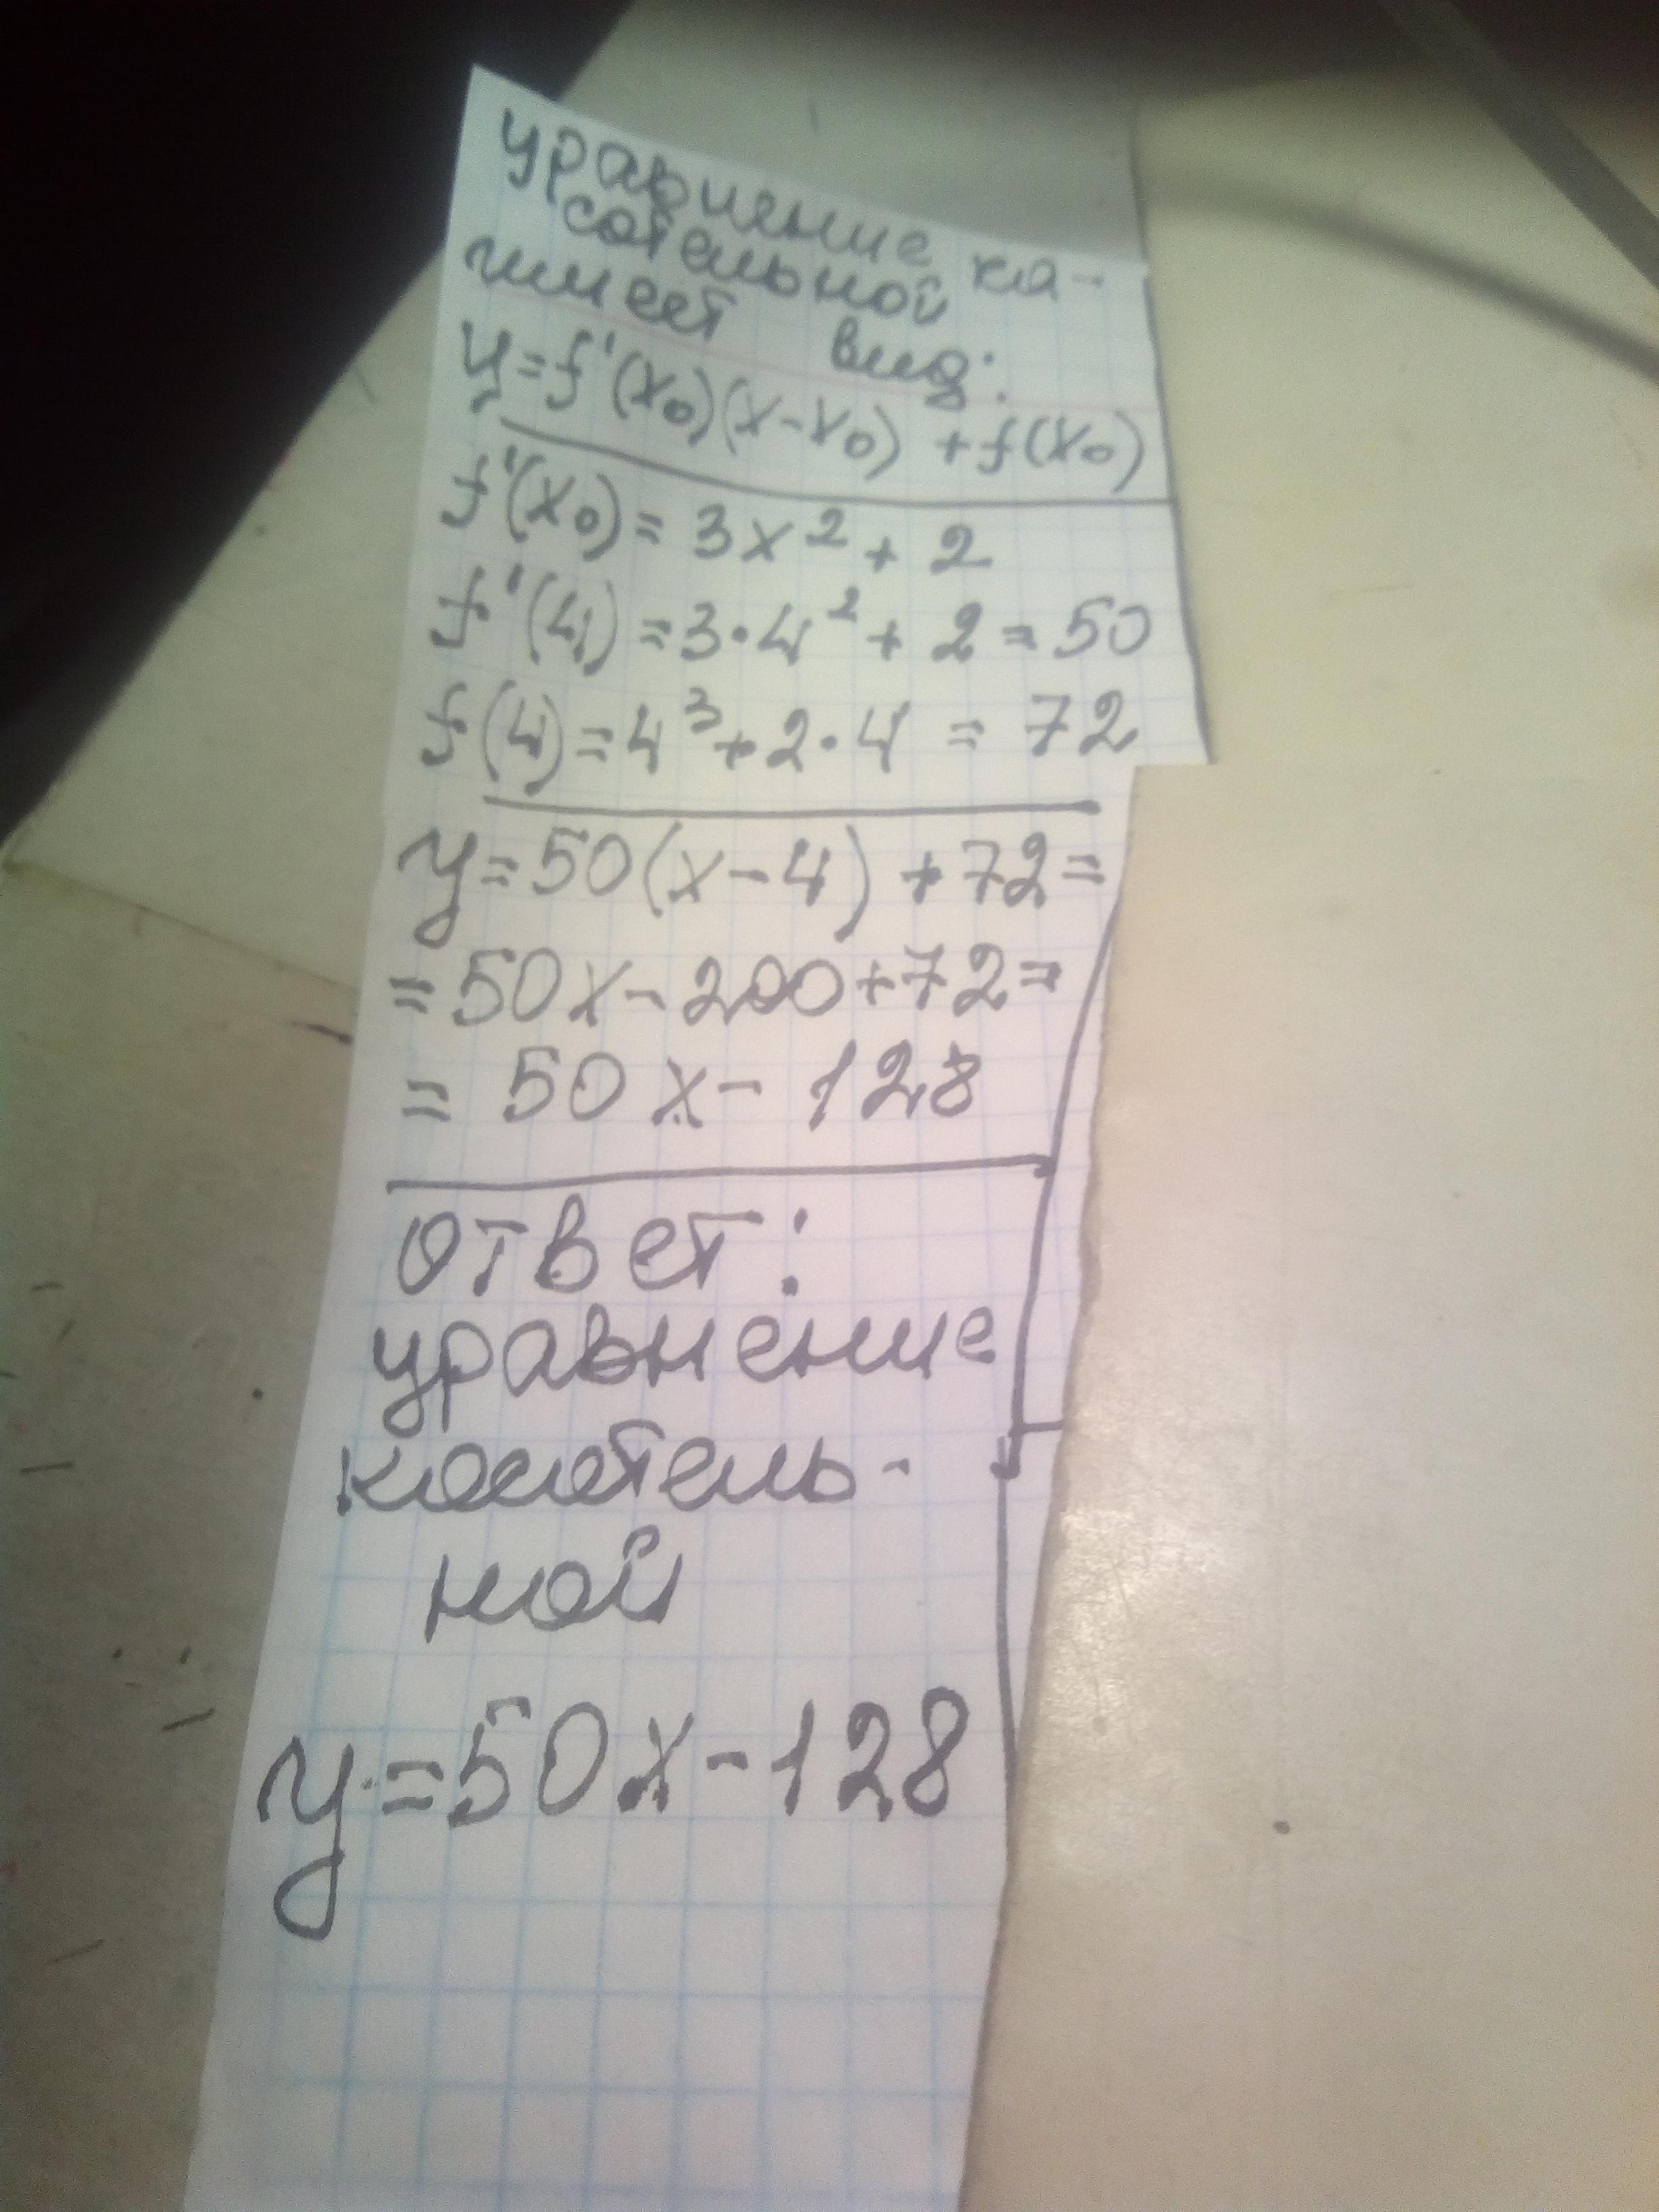 уравнение ка-
сательной
имеет вид:
y=f'(x₀)(x-x₀)+f(x₀)
f'(x₀)=3x²+2
f'(4)=3·4²+2=50
f(4)=4³+2·4=72
y=50(x-4)+72=
=50x-200+72=
=50x-128
ответ:
уравнение
касатель-
ной
y=50x-128